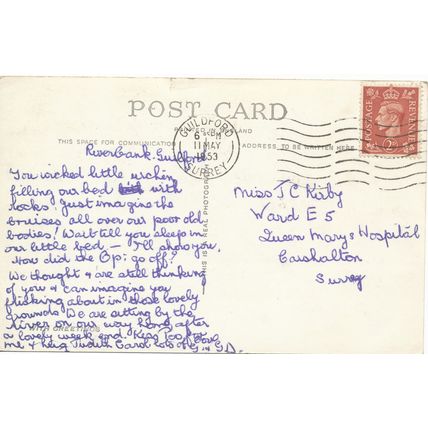 POST CARD
THIS SPACE FOR COMMUNICATION
ADDRESS TO BE WRITTEN HERE
GUILDFORD
6 PM
11 MAY
1953
SURREY
POSTAGE
REVENUE
2D
THIS IS A REAL PHOTOGRAPH
River bank. Guildford
You wicked little urchin
filling our bed with
rocks. Just imagine the
bruises all over our poor old
bodies! Wait tell you sleep in
our little bed — I'll show you.
How did the Op: go off?
We thought & are still thinking
of you & can imagine you
flicking about in those lovely
grounds. We are sitting by the
river on our way home after
a lovely week end. Kiss Poo for
me & hug Judith Carol
WITH GREETINGS
Miss J C Kirby
Ward E 5
Queen Marys Hospital
Carshalton
Surrey